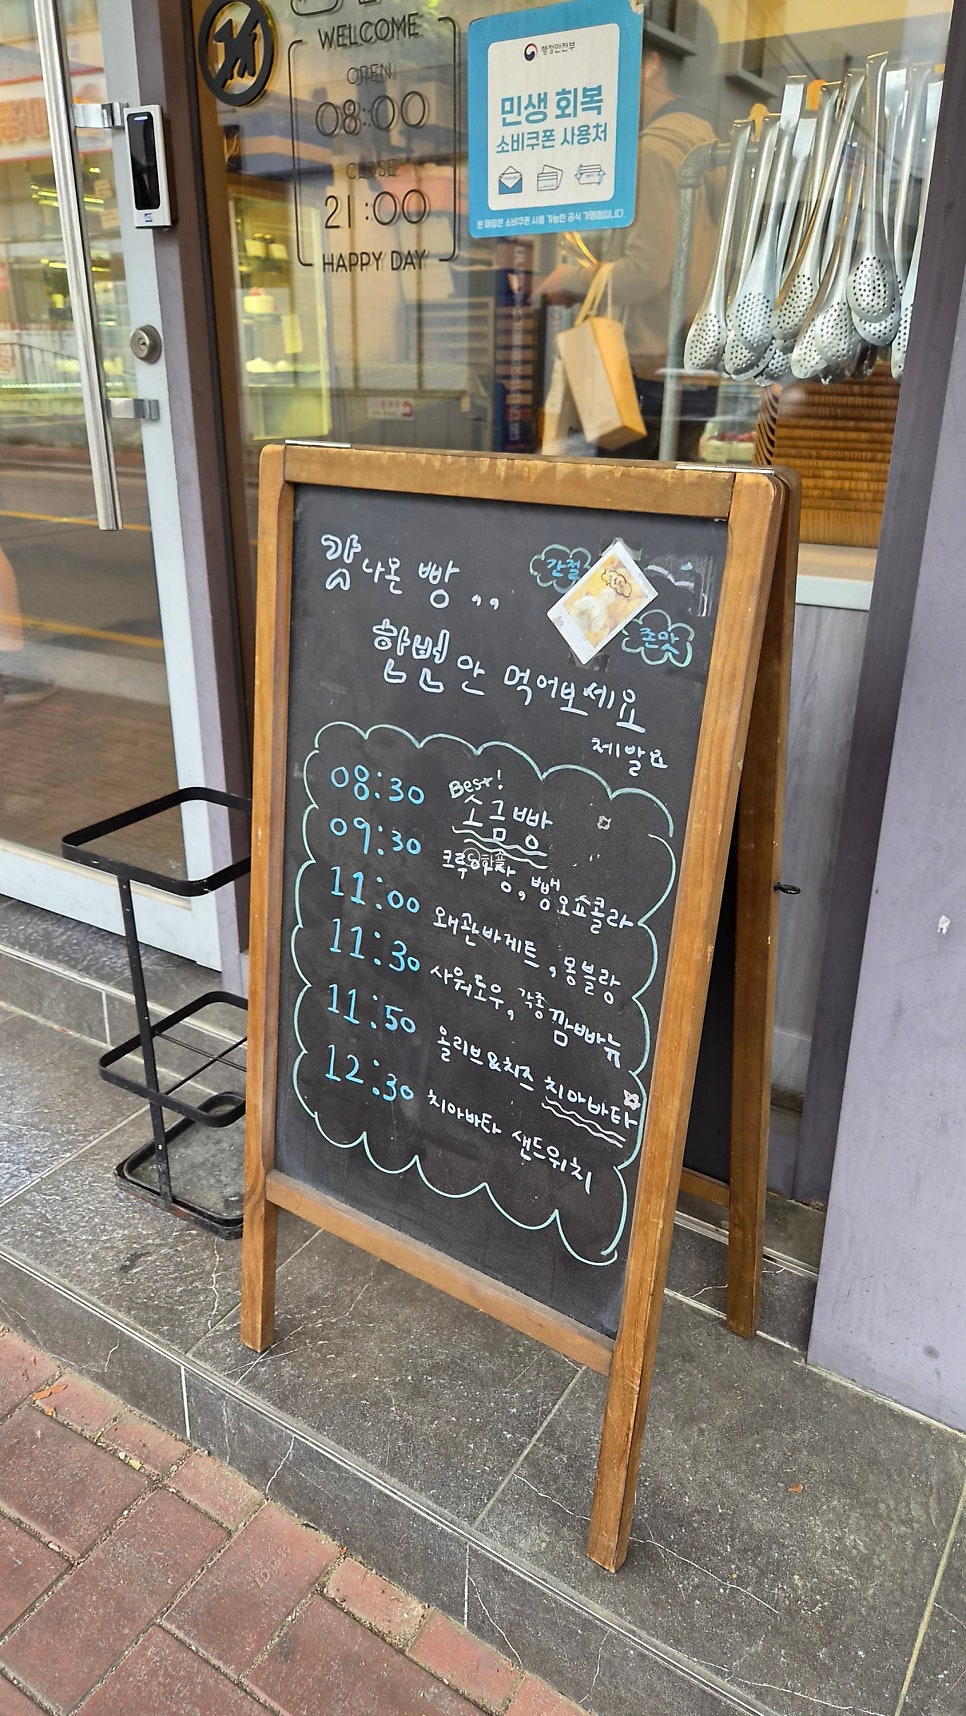 WELCOME
OPEN
08:00
CLOSE
21:00
HAPPY DAY
행정안전부
민생 회복
소비쿠폰 사용처
본 매장은 소비쿠폰 사용 가능한 공식 가맹점입니다.
갓 나온 빵,,
간절
존맛
한번만 먹어보세요
제발요
08:30 Best! 소금빵
09:30 크루와상, 뺑오쇼콜라
11:00 왜관바게트, 몽블랑
11:30 사워도우, 각종 깜빠뉴
11:50 올리브&치즈 치아바타
12:30 치아바타 샌드위치